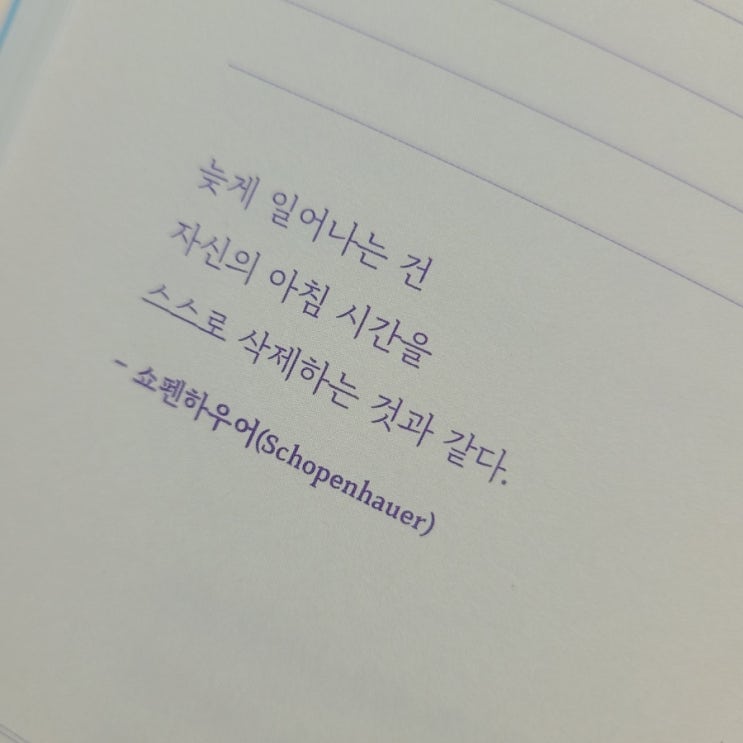 늦게 일어나는 건
자신의 아침 시간을
스스로 삭제하는 것과 같다.
- 쇼펜하우어(Schopenhauer)